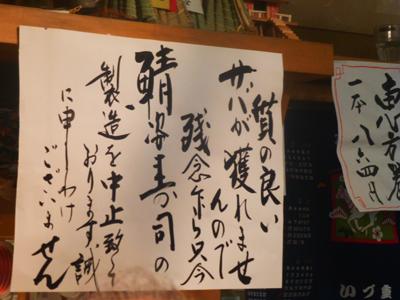 質の良い
サバが獲れませ
んのです
残念乍ら只今
鯖姿寿司の
製造を中止致して
おります、誠
に申しわけ
ございません
一本 八六四円
いづ重